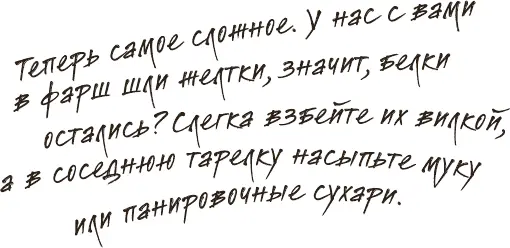 Теперь самое сложное. У нас с вами
в фарш шли желтки, значит, белки
остались? Слегка взбейте их вилкой,
а в соседнюю тарелку насыпьте муку
или панировочные сухари.